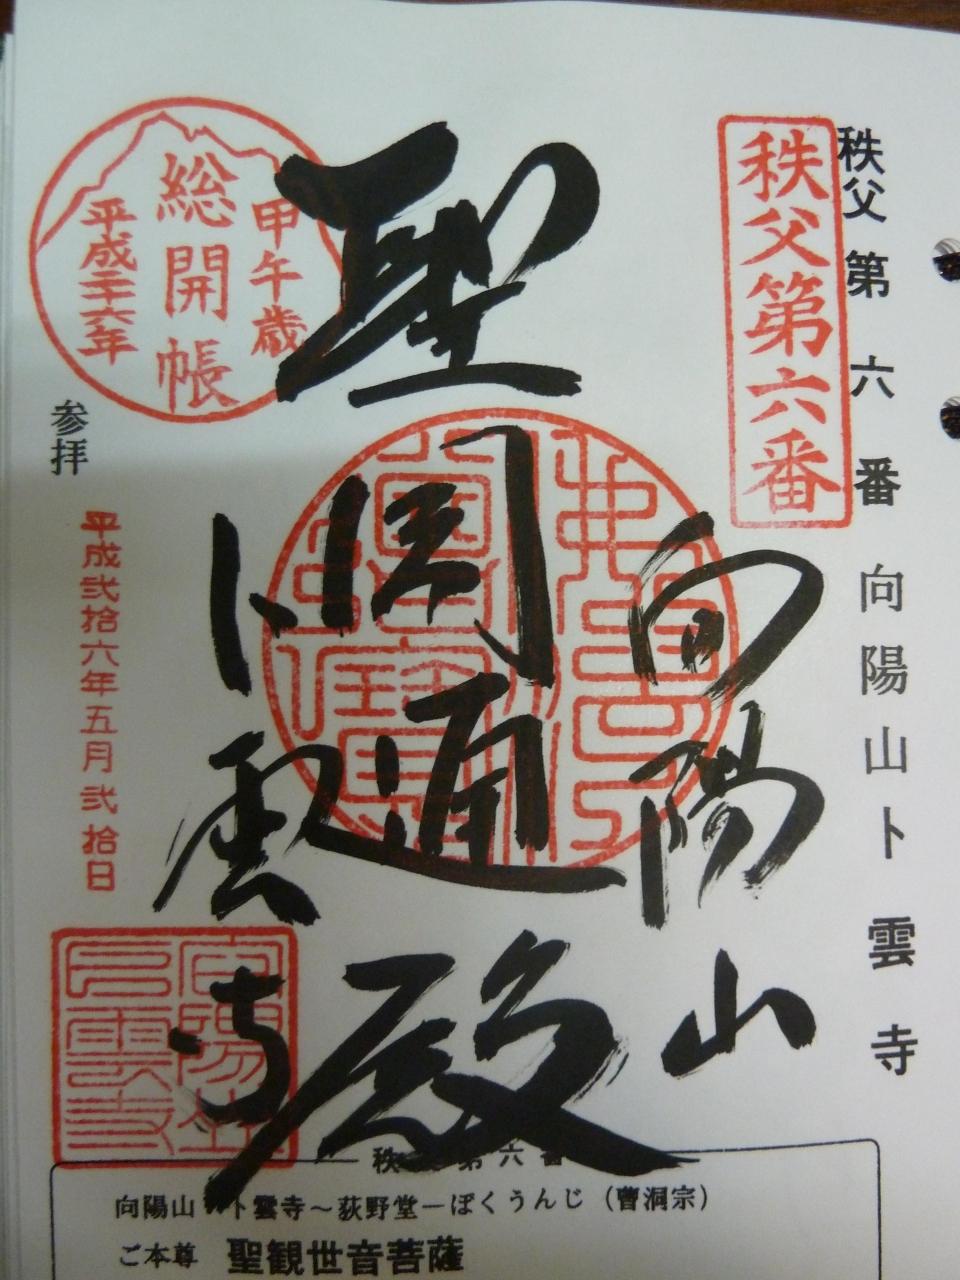 秩父第六番 向陽山卜雲寺
秩父第六番
甲午歳
総開帳
平成二十六年
向陽山
聖圓通殿
卜雲寺
参拝
平成弐拾六年五月弐拾日
佛法僧寳
向陽山
卜雲寺
秩父第六番
向陽山 卜雲寺～荻野堂－ぼくうんじ（曹洞宗）
ご本尊 聖観世音菩薩